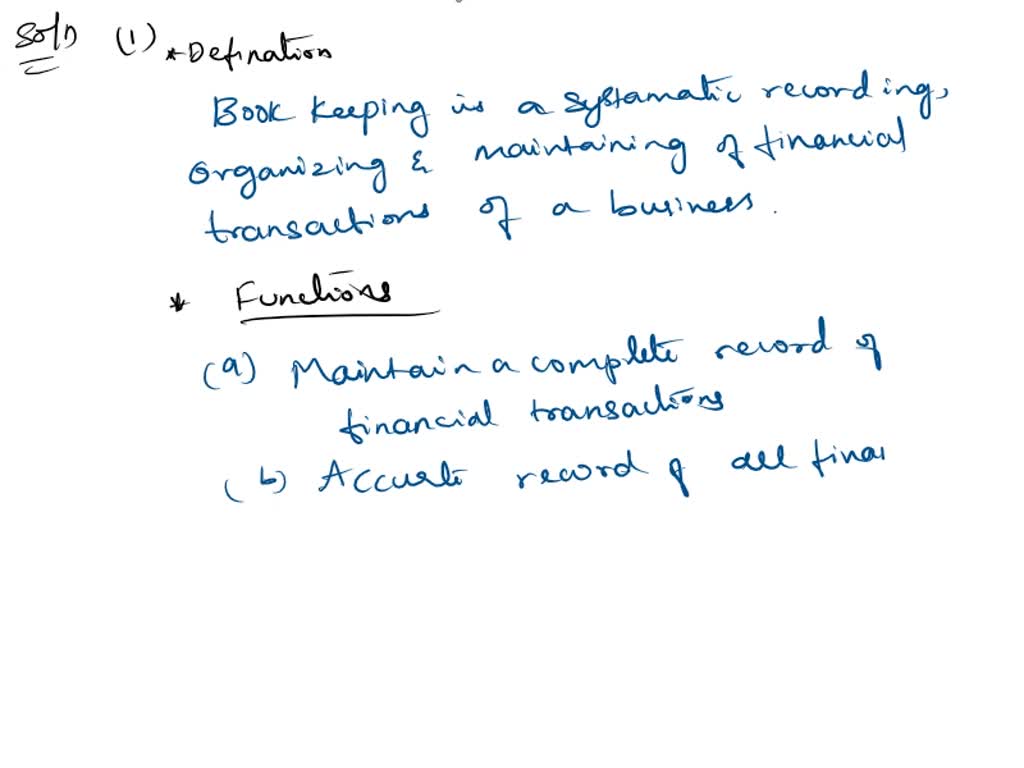 Solⁿ (1) * Defination
Book keeping is a systamatic recording,
organizing & maintaining of financial
transactions of a business.
* Functions
(a) Maintain a complete record of
financial transactions
(b) Accurate record of all finan